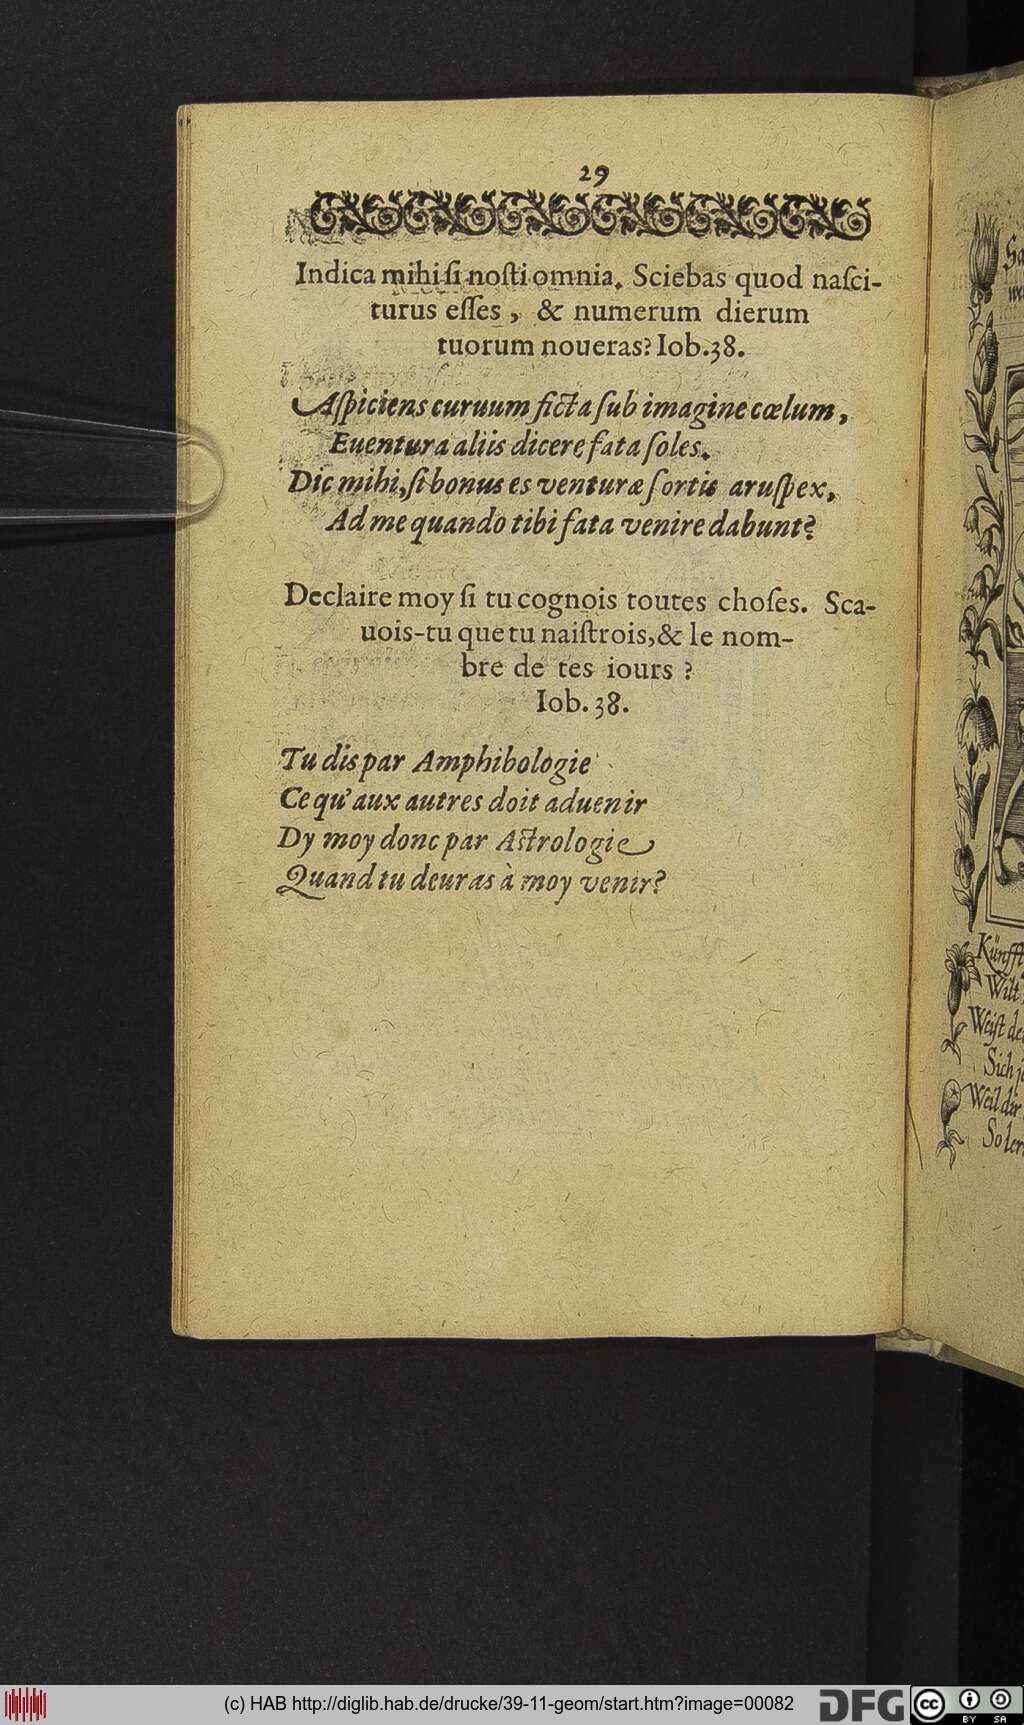 29
Indica mihi ſi noſti omnia. Sciebas quod naſci-
turus eſſes, & numerum dierum
tuorum noueras? Iob. 38.
Aſpiciens curuum ficta ſub imagine cœlum,
Euentura aliis dicere fata ſoles.
Dic mihi, ſi bonus es venturæ ſortis aruſpex,
Ad me quando tibi fata venire dabunt?
Declaire moy ſi tu cognois toutes choſes. Sca-
uois-tu que tu naiſtrois, & le nom-
bre de tes iours ?
Iob. 38.
Tu dis par Amphibologie
Ce qu'aux autres doit aduenir
Dy moy donc par Aſtrologie
Quand tu deuras à moy venir?
Wilt
Sich
Weil dir
(c) HAB http://diglib.hab.de/drucke/39-11-geom/start.htm?image=00082
DFG
cc
BY SA